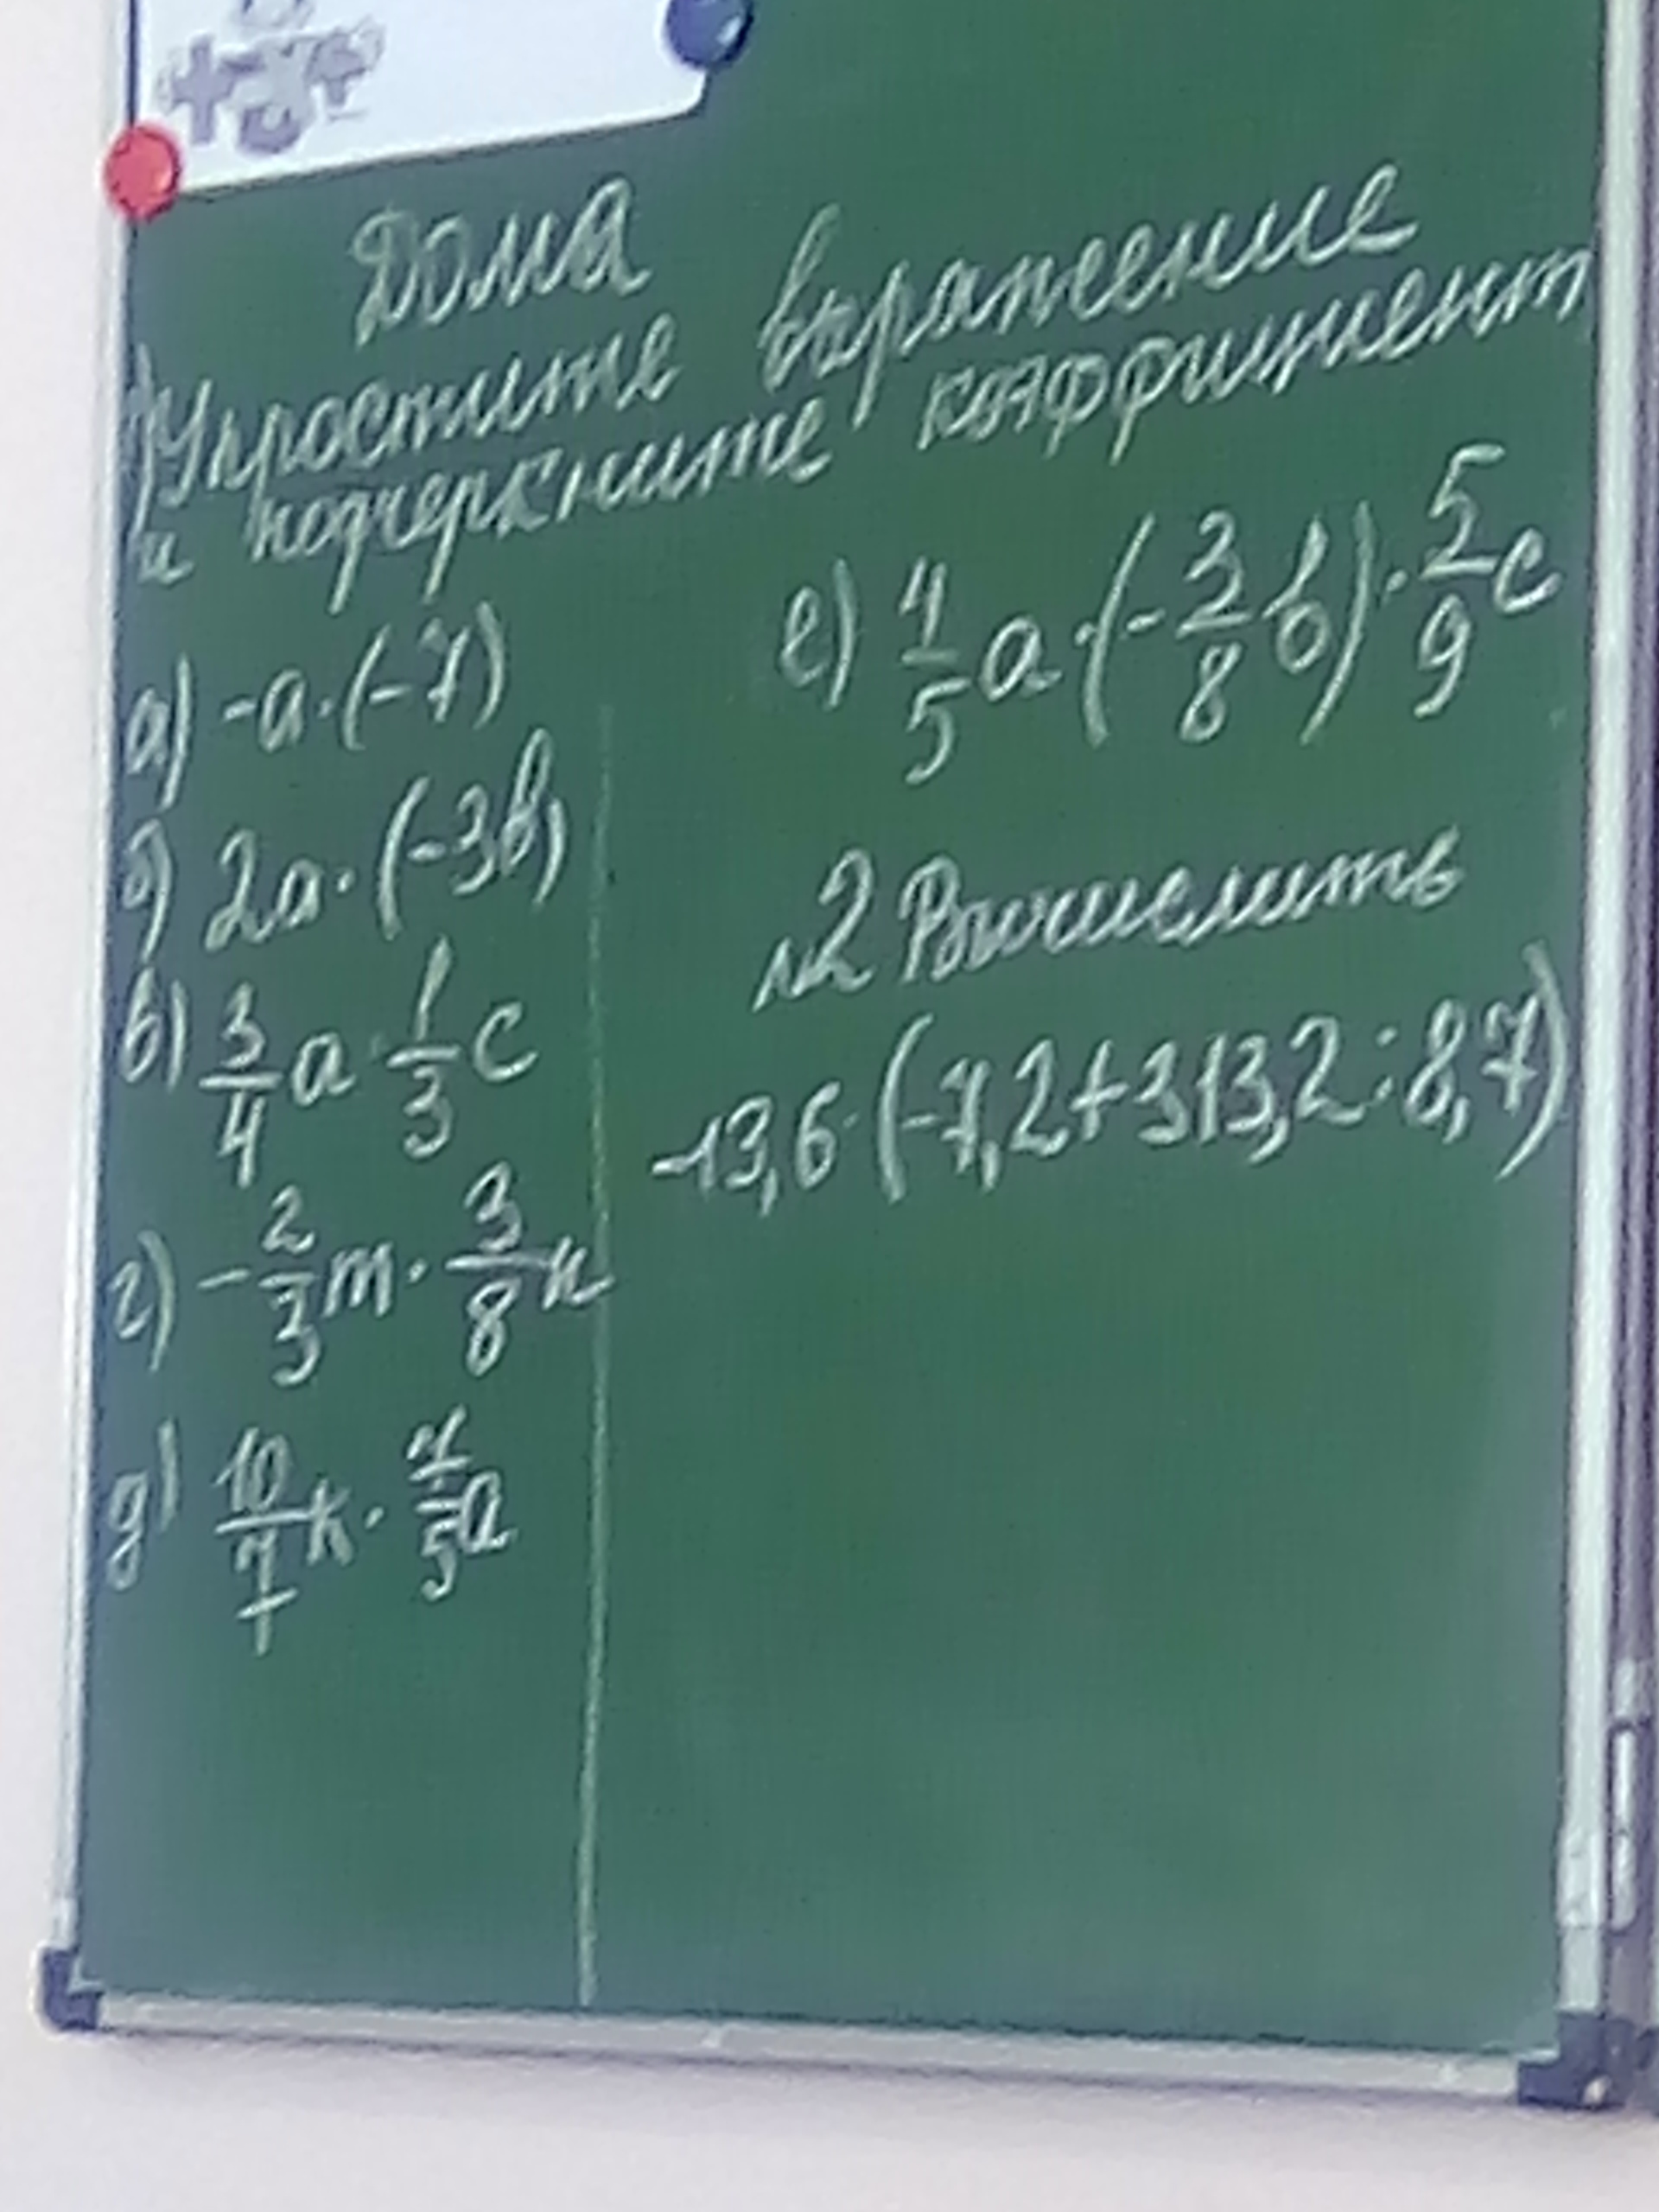 Дома
1) Упростите выражение
и подчеркните коэффициент
а) -a·(-7)
б) 2a·(-3b)
в) 3/4 a · 1/3 c
г) -2/3 m · 3/8 n
д) 10/7 k · 7/5 a
е) 4/5 a·(-3/8 b)·5/9 c
№2 Вычислить
-13,6·(-7,2+313,2:8,7)